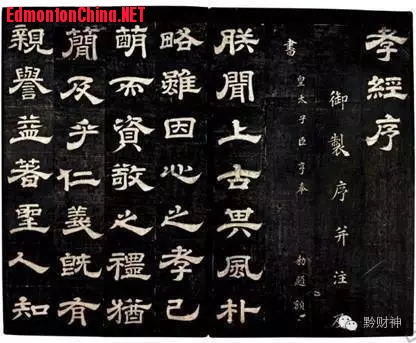 EdmontonChina.NET
孝經序
御製序并注及
書
皇太子臣亨奉 勅題額
朕聞上古其風朴
略雖因心之孝已
萌而資敬之禮猶
簡及乎仁義既有
親譽益著聖人知
黔财神